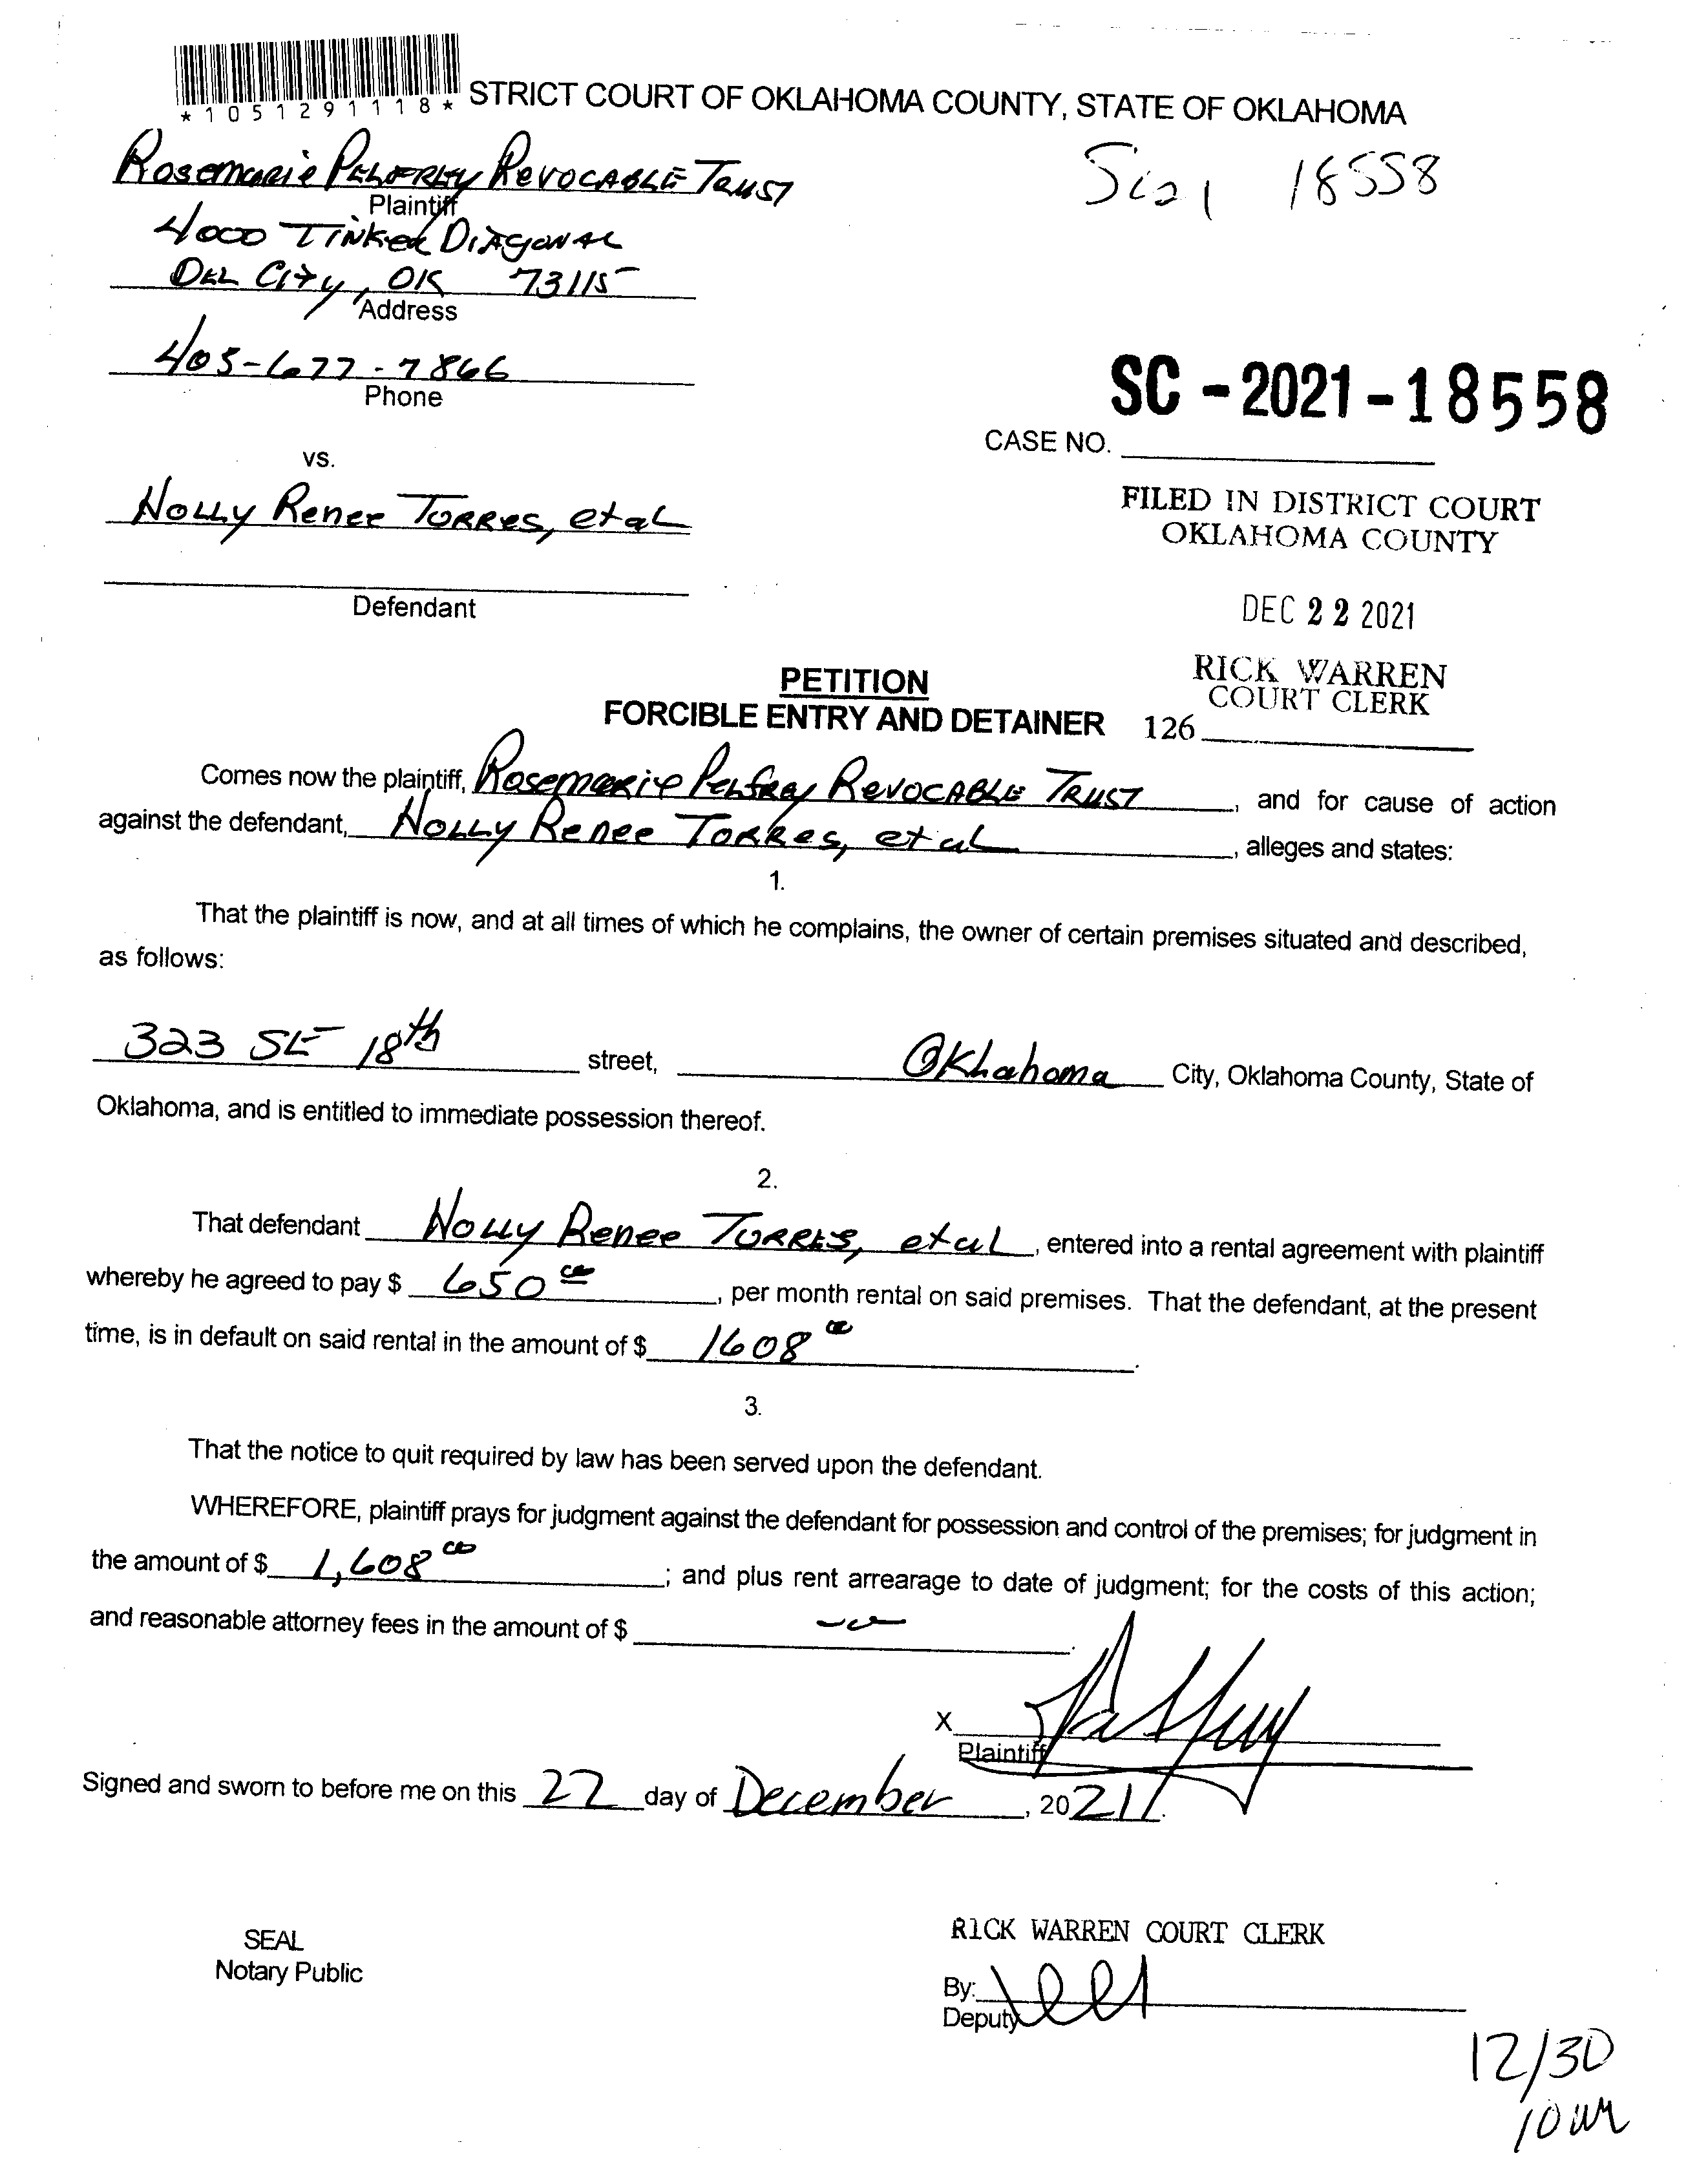 *1051291118* STRICT COURT OF OKLAHOMA COUNTY, STATE OF OKLAHOMA
Rosemarie Pelfrey Revocable Trust
Plaintiff
18558
4000 Tinker Diagonal
Del City, OK 73115
Address
405-677-7866
Phone
SC-2021-18558
CASE NO.
vs.
Holly Renee Torres, et al
FILED IN DISTRICT COURT
OKLAHOMA COUNTY
Defendant
DEC 22 2021
RICK WARREN
COURT CLERK
126
PETITION
FORCIBLE ENTRY AND DETAINER
Comes now the plaintiff, Rosemarie Pelfrey Revocable Trust, and for cause of action
against the defendant, Holly Renee Torres, et al, alleges and states:
1.
That the plaintiff is now, and at all times of which he complains, the owner of certain premises situated and described,
as follows:
323 SE 18th street, Oklahoma City, Oklahoma County, State of
Oklahoma, and is entitled to immediate possession thereof.
2.
That defendant Holly Renee Torres, et al, entered into a rental agreement with plaintiff
whereby he agreed to pay $ 650 00, per month rental on said premises. That the defendant, at the present
time, is in default on said rental in the amount of $ 1608 00.
3.
That the notice to quit required by law has been served upon the defendant.
WHEREFORE, plaintiff prays for judgment against the defendant for possession and control of the premises; for judgment in
the amount of $ 1,608 00; and plus rent arrearage to date of judgment; for the costs of this action;
and reasonable attorney fees in the amount of $
X
Plaintiff
Signed and sworn to before me on this 22 day of December, 2021.
SEAL
Notary Public
RICK WARREN COURT CLERK
By:
Deputy
12/30
10 am